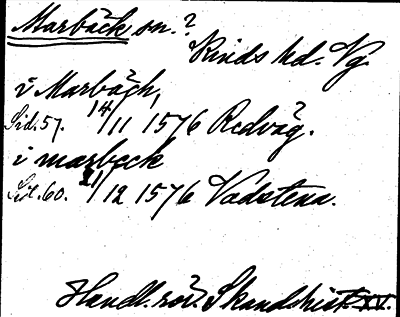 Marbäck sn.?
Kinds hd. Vg.
i Marbäch,
Sid. 57. 14/11 1576 Redväg.
i marbeck
Sid. 60. 21/12 1576 Vadstena.
Handl. rör. Skand. hist. XV.